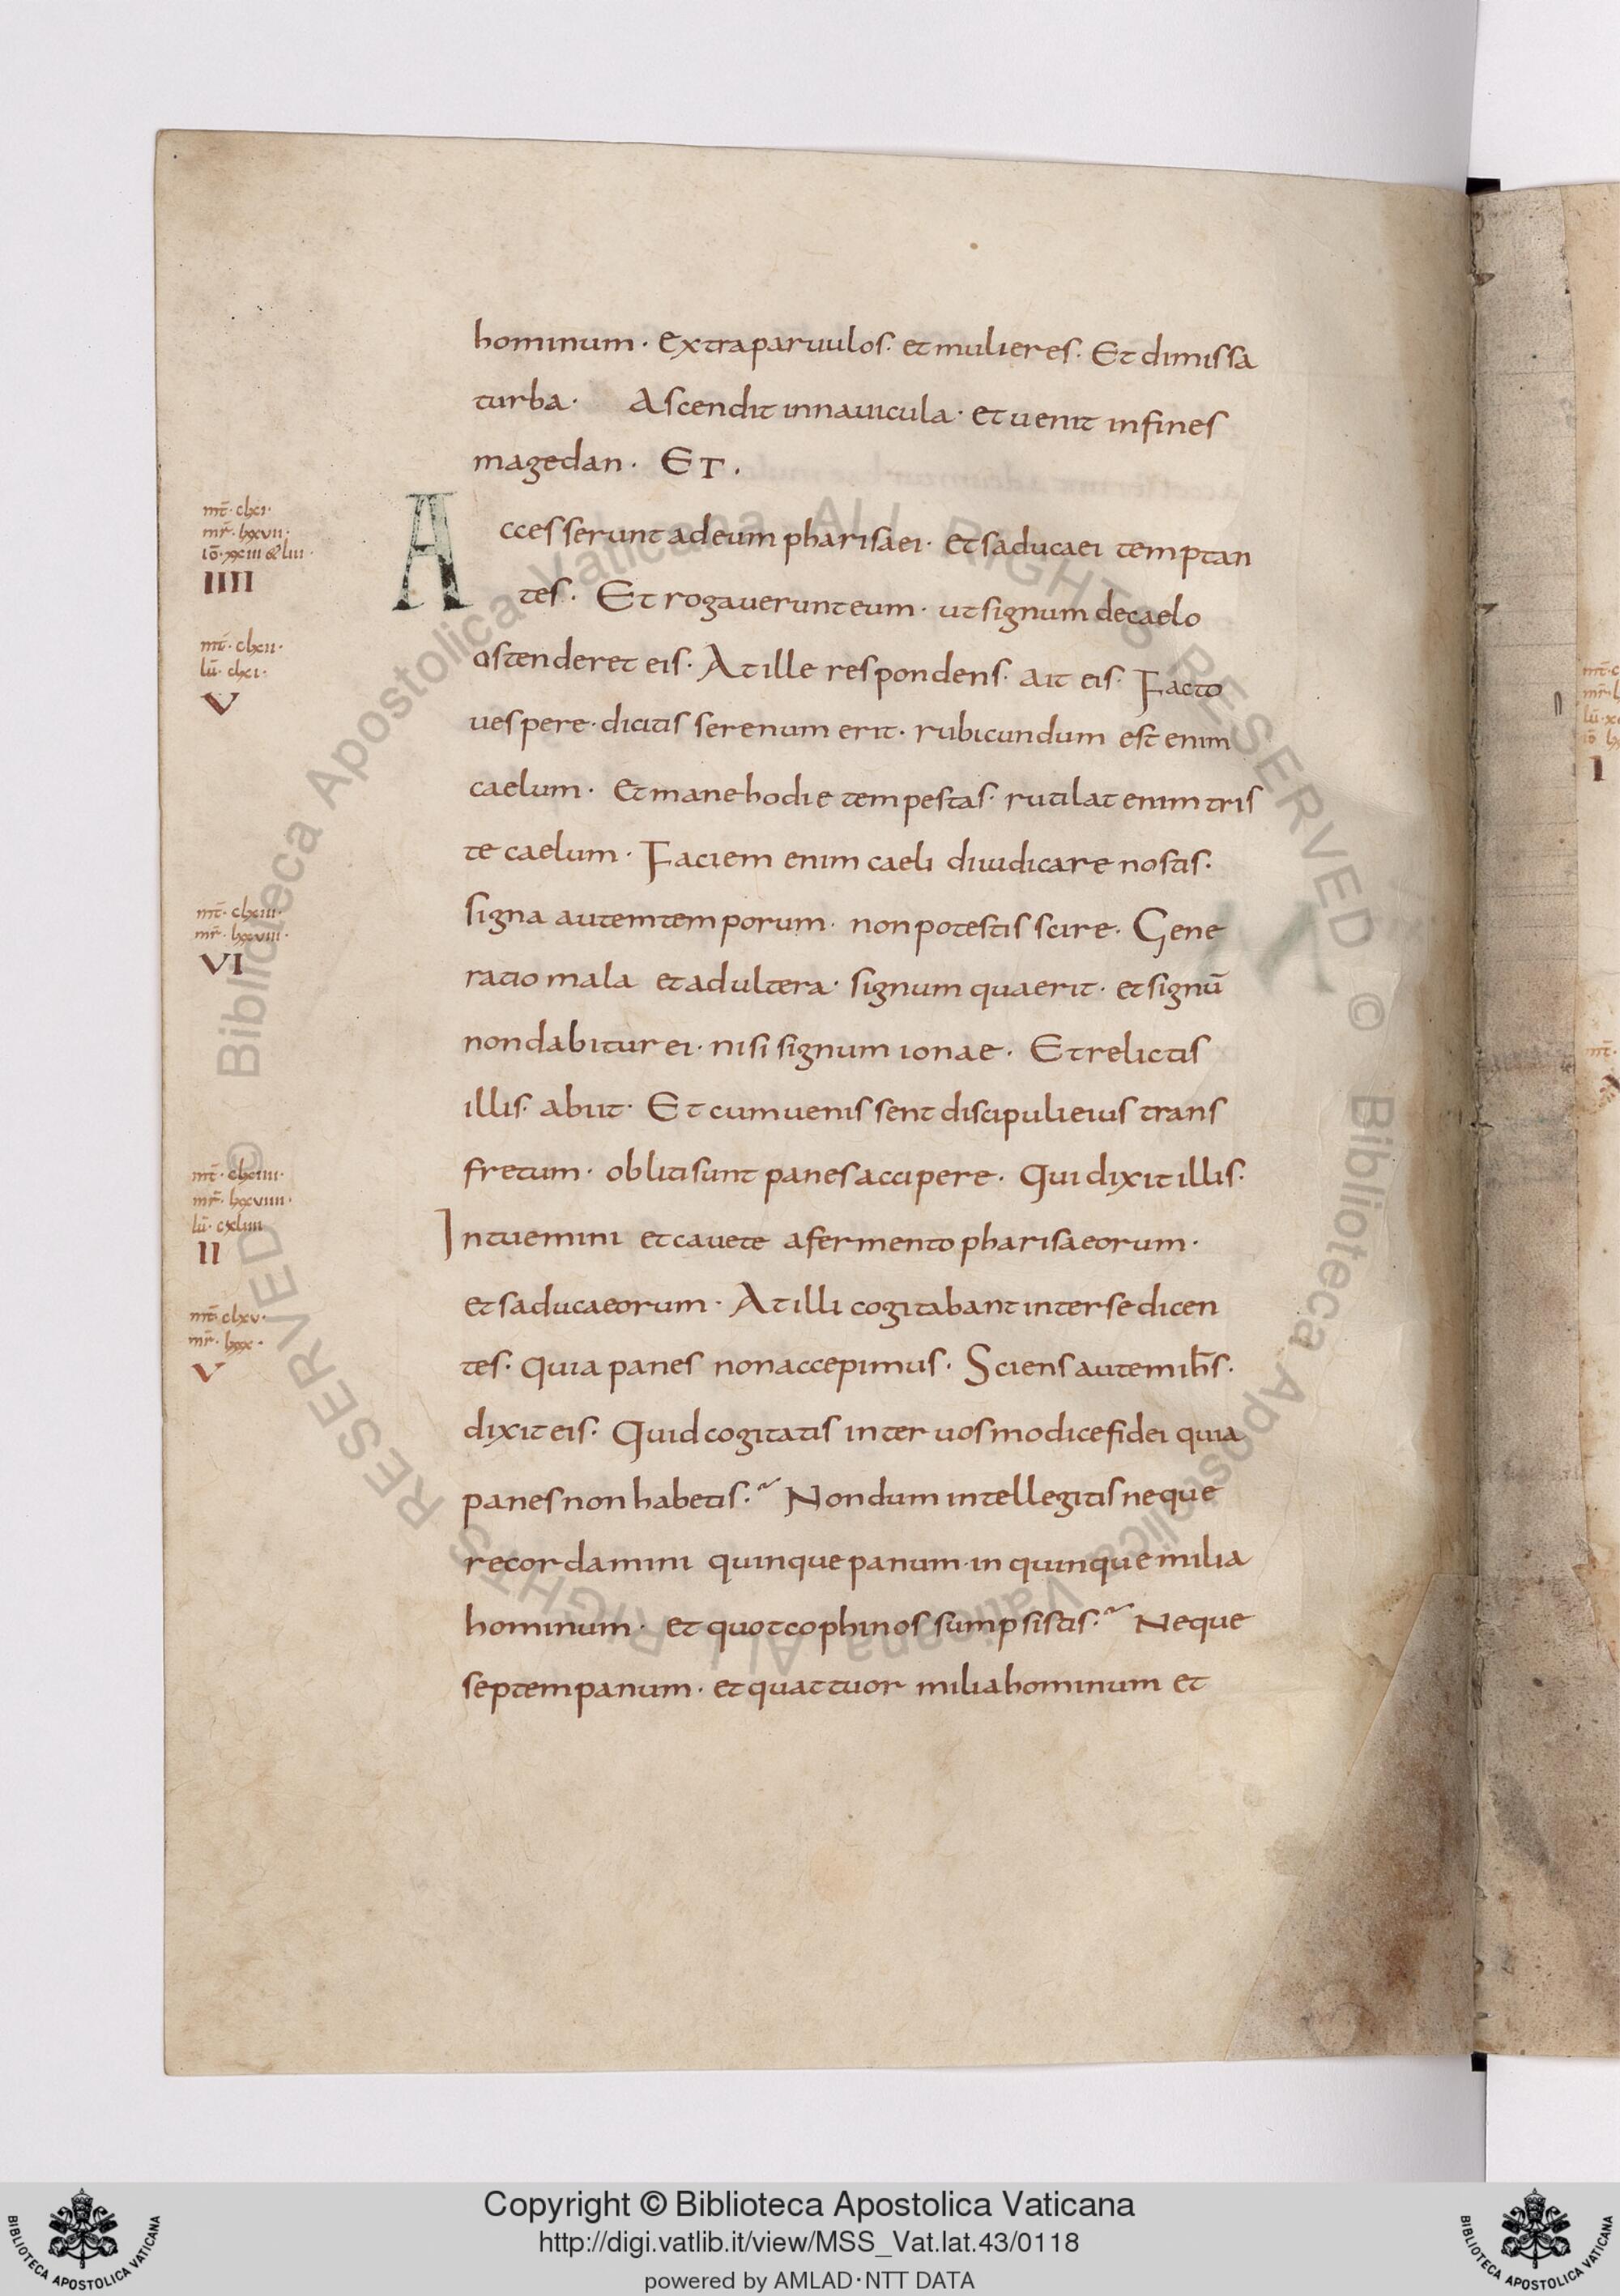 hominum · extra paruulos · et mulieres · Et dimissa
turba · Ascendit in nauicula · et uenit in fines
magedan · ET .
mt̄ · clxi ·
mr̄ · lxxvii ·
iō · xxiii & liii ·
IIII
Accesserunt ad eum pharisaei · et saducaei temptan
tes · Et rogauerunt eum · ut signum de caelo
mt̄ · clxii ·
lū · clxi ·
V
ostenderet eis · At ille respondens · ait eis · Facto
uespere · dicitis serenum erit · rubicundum est enim
caelum · et mane hodie tempestas · rutilat enim tris
te caelum · Faciem enim caeli diiudicare nostis ·
mt̄ · clxiii ·
mr̄ · lxxviii ·
VI
signa autem temporum · non potestis scire · Gene
ratio mala et adultera · signum quaerit · et signū
non dabitur ei · nisi signum ionae · Et relictis
illis · abiit · Et cum uenissent discipuli eius trans
fretum · obliti sunt panes accipere · Qui dixit illis ·
mt̄ · clxiiii ·
mr̄ · lxxviiii ·
lū · cxliiii
II
Intuemini et cauete a fermento pharisaeorum ·
et saducaeorum · At illi cogitabant inter se dicen
mt̄ · clxv ·
mr̄ · lxxx ·
V
tes · quia panes non accepimus · Sciens autem ih̄s ·
dixit eis · Quid cogitatis inter uos modice fidei quia
panes non habetis · Nondum intellegitis neque
recordamini quinque panum · in quinque milia
hominum · et quot cophinos sumpsistis · Neque
septem panum · et quattuor milia hominum et
© Biblioteca Apostolica Vaticana ALL RIGHTS RESERVED
© Biblioteca Apostolica Vaticana ALL RIGHTS RESERVED
Copyright © Biblioteca Apostolica Vaticana
http://digi.vatlib.it/view/MSS_Vat.lat.43/0118
powered by AMLAD·NTT DATA
BIBLIOTECA APOSTOLICA VATICANA
BIBLIOTECA APOSTOLICA VATICANA